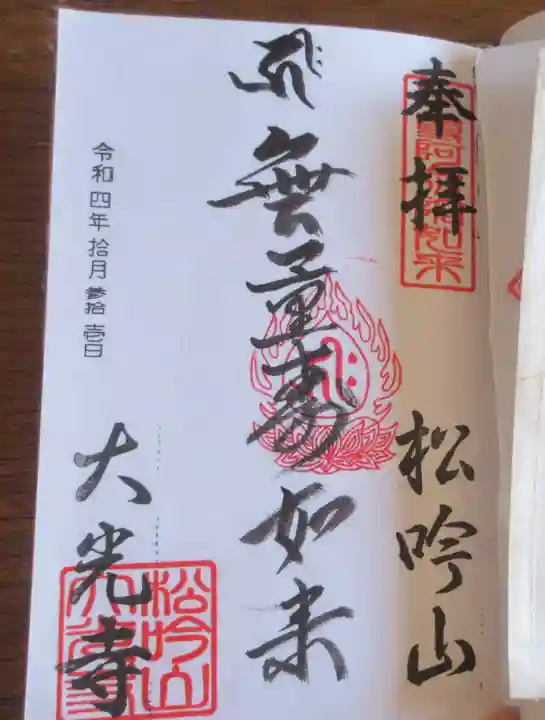 奉拝
松吟山
無量寿如来
令和四年拾月参拾壱日
大光寺
松吟山
大光寺